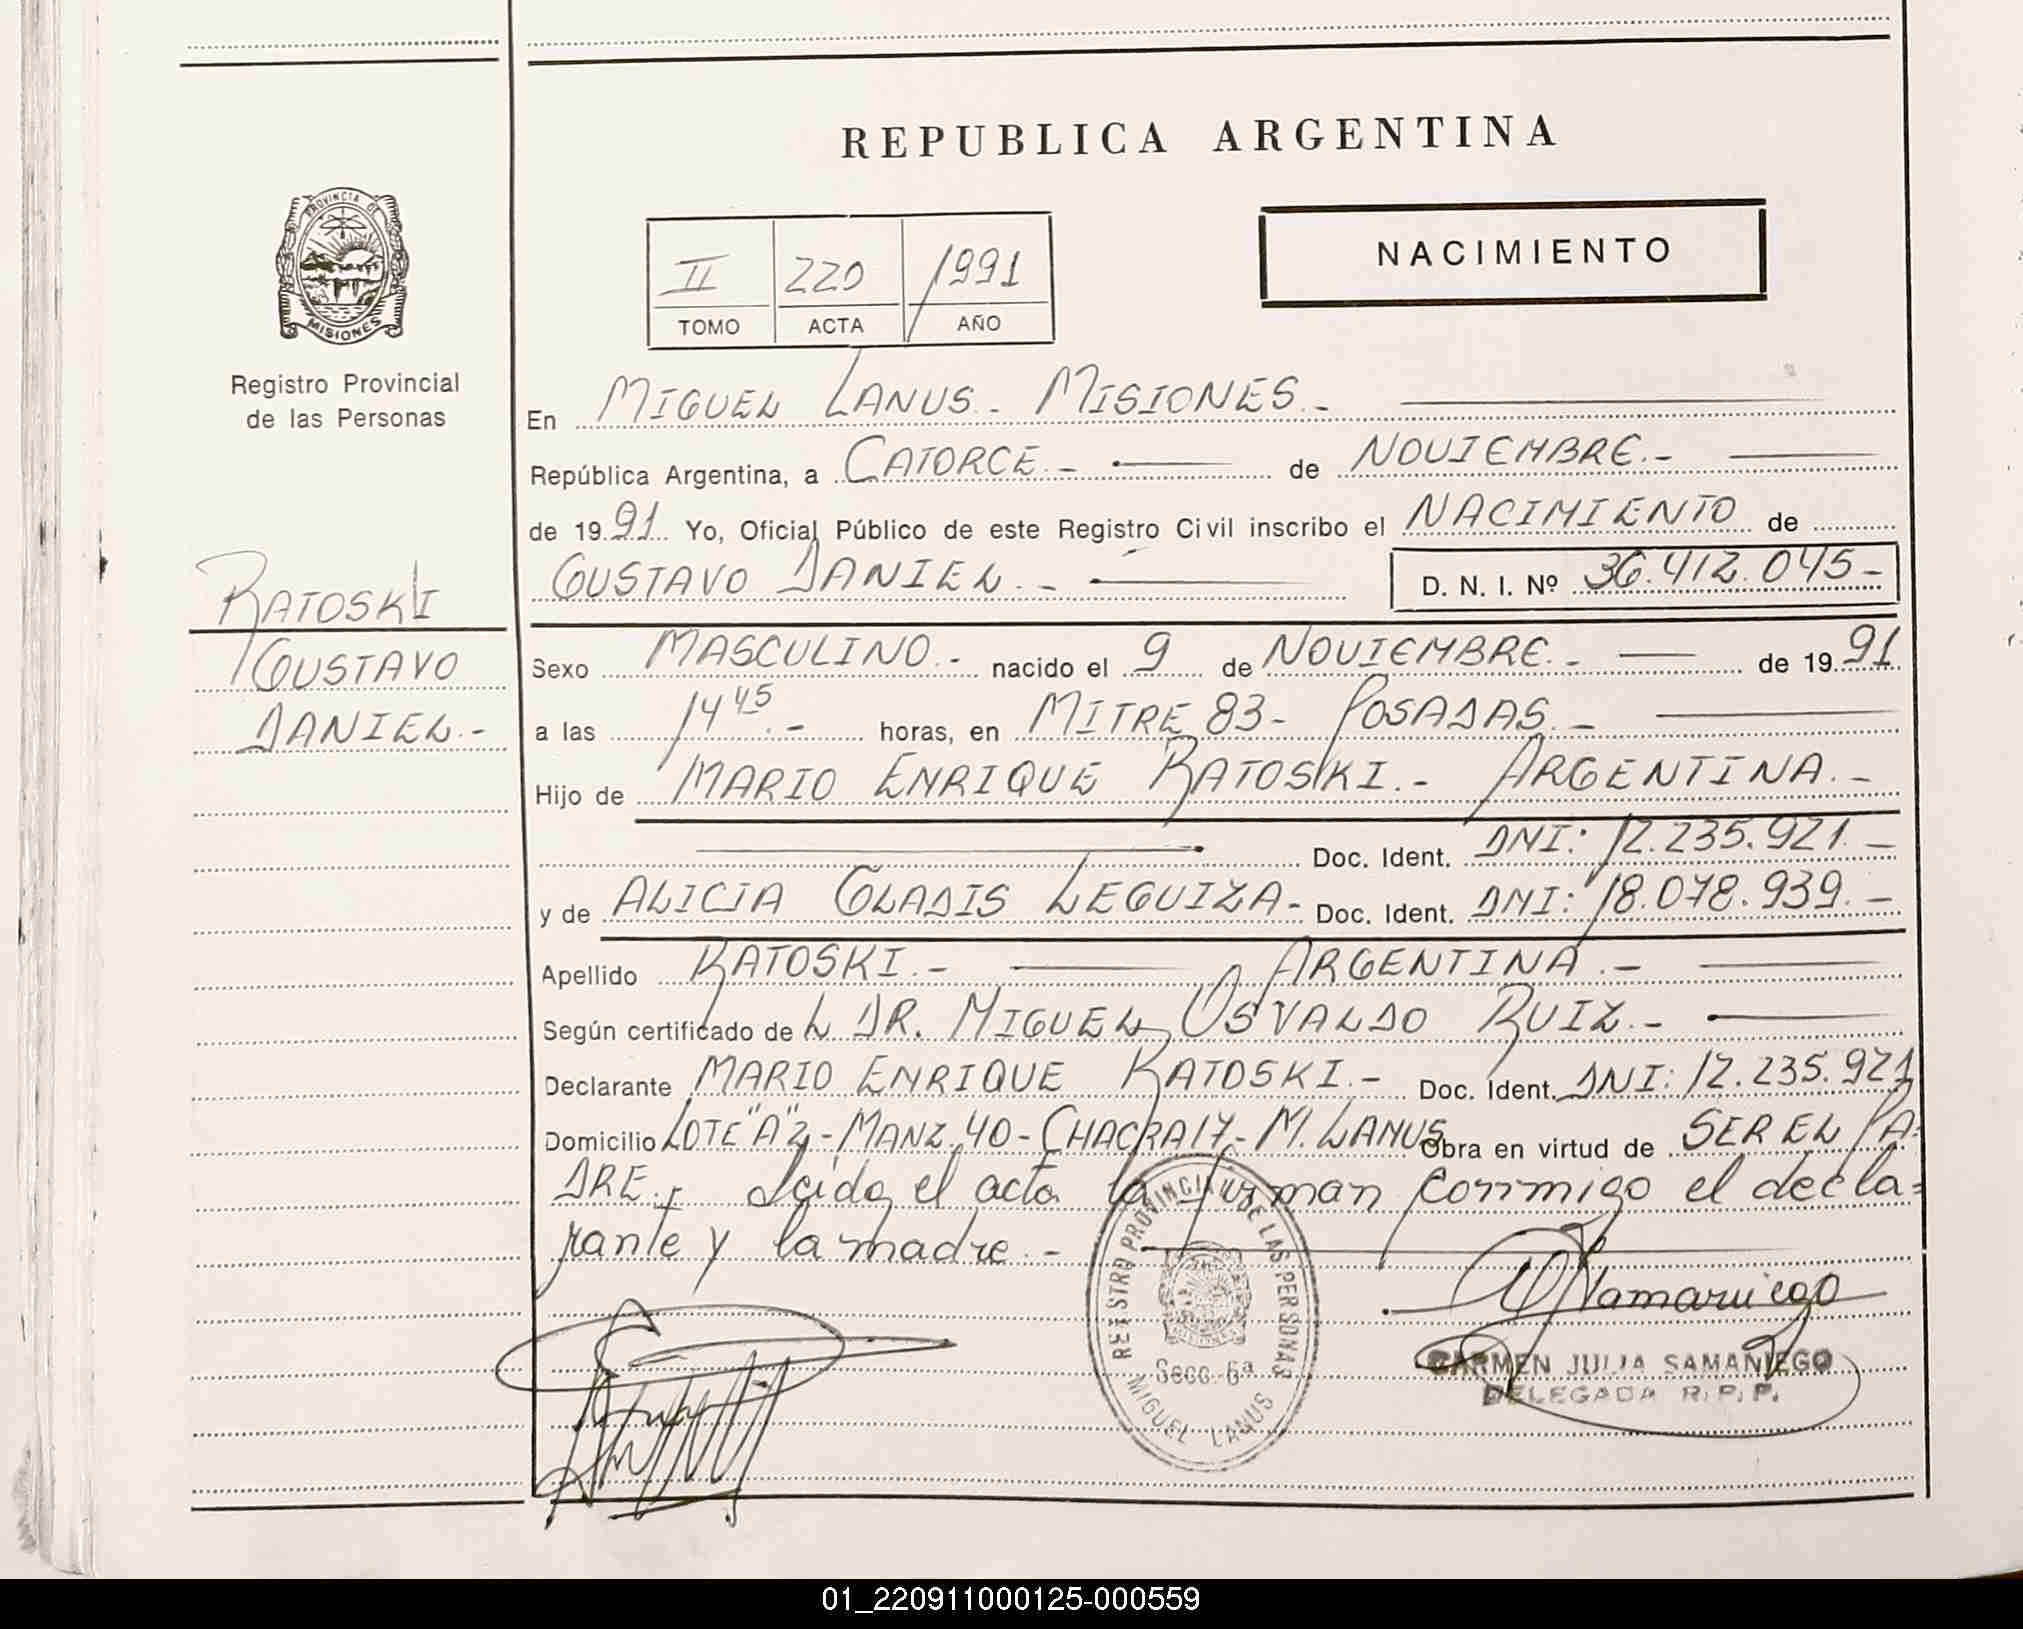 REPUBLICA ARGENTINA
PROVINCIA DE
MISIONES
Registro Provincial
de las Personas
II 220 1991
TOMO ACTA AÑO
NACIMIENTO
En MIGUEL LANUS - MISIONES.-
República Argentina, a CATORCE.- de NOVIEMBRE.-
de 19 91 Yo, Oficial Público de este Registro Civil inscribo el NACIMIENTO de
GUSTAVO DANIEL.- D. N. I. Nº 36.412.045-
RATOSKI
GUSTAVO
DANIEL.-
Sexo MASCULINO.- nacido el 9 de NOVIEMBRE.- de 19 91
a las 14 45.- horas, en MITRE 83- POSADAS.-
Hijo de MARIO ENRIQUE RATOSKI.- ARGENTINA.-
Doc. Ident. DNI: 12.235.921.-
y de ALICIA GLADIS LEGUIZA- Doc. Ident. DNI: 18.078.939.-
Apellido RATOSKI.- ARGENTINA.-
Según certificado de L DR. MIGUEL OSVALDO RUIZ.-
Declarante MARIO ENRIQUE RATOSKI.- Doc. Ident. DNI: 12.235.921
Domicilio LOTE "A" - MANZ. 40 - CHACRA 17 - M. LANUS Obra en virtud de SER EL PA-
DRE.- Leida el acta la firman conmigo el decla=
rante y la madre.-
REGISTRO PROVINCIAL DE LAS PERSONAS
Secc. 6ª
MIGUEL LANUS
CARMEN JULIA SAMANIEGO
DELEGADA R. P. P.
01_220911000125-000559